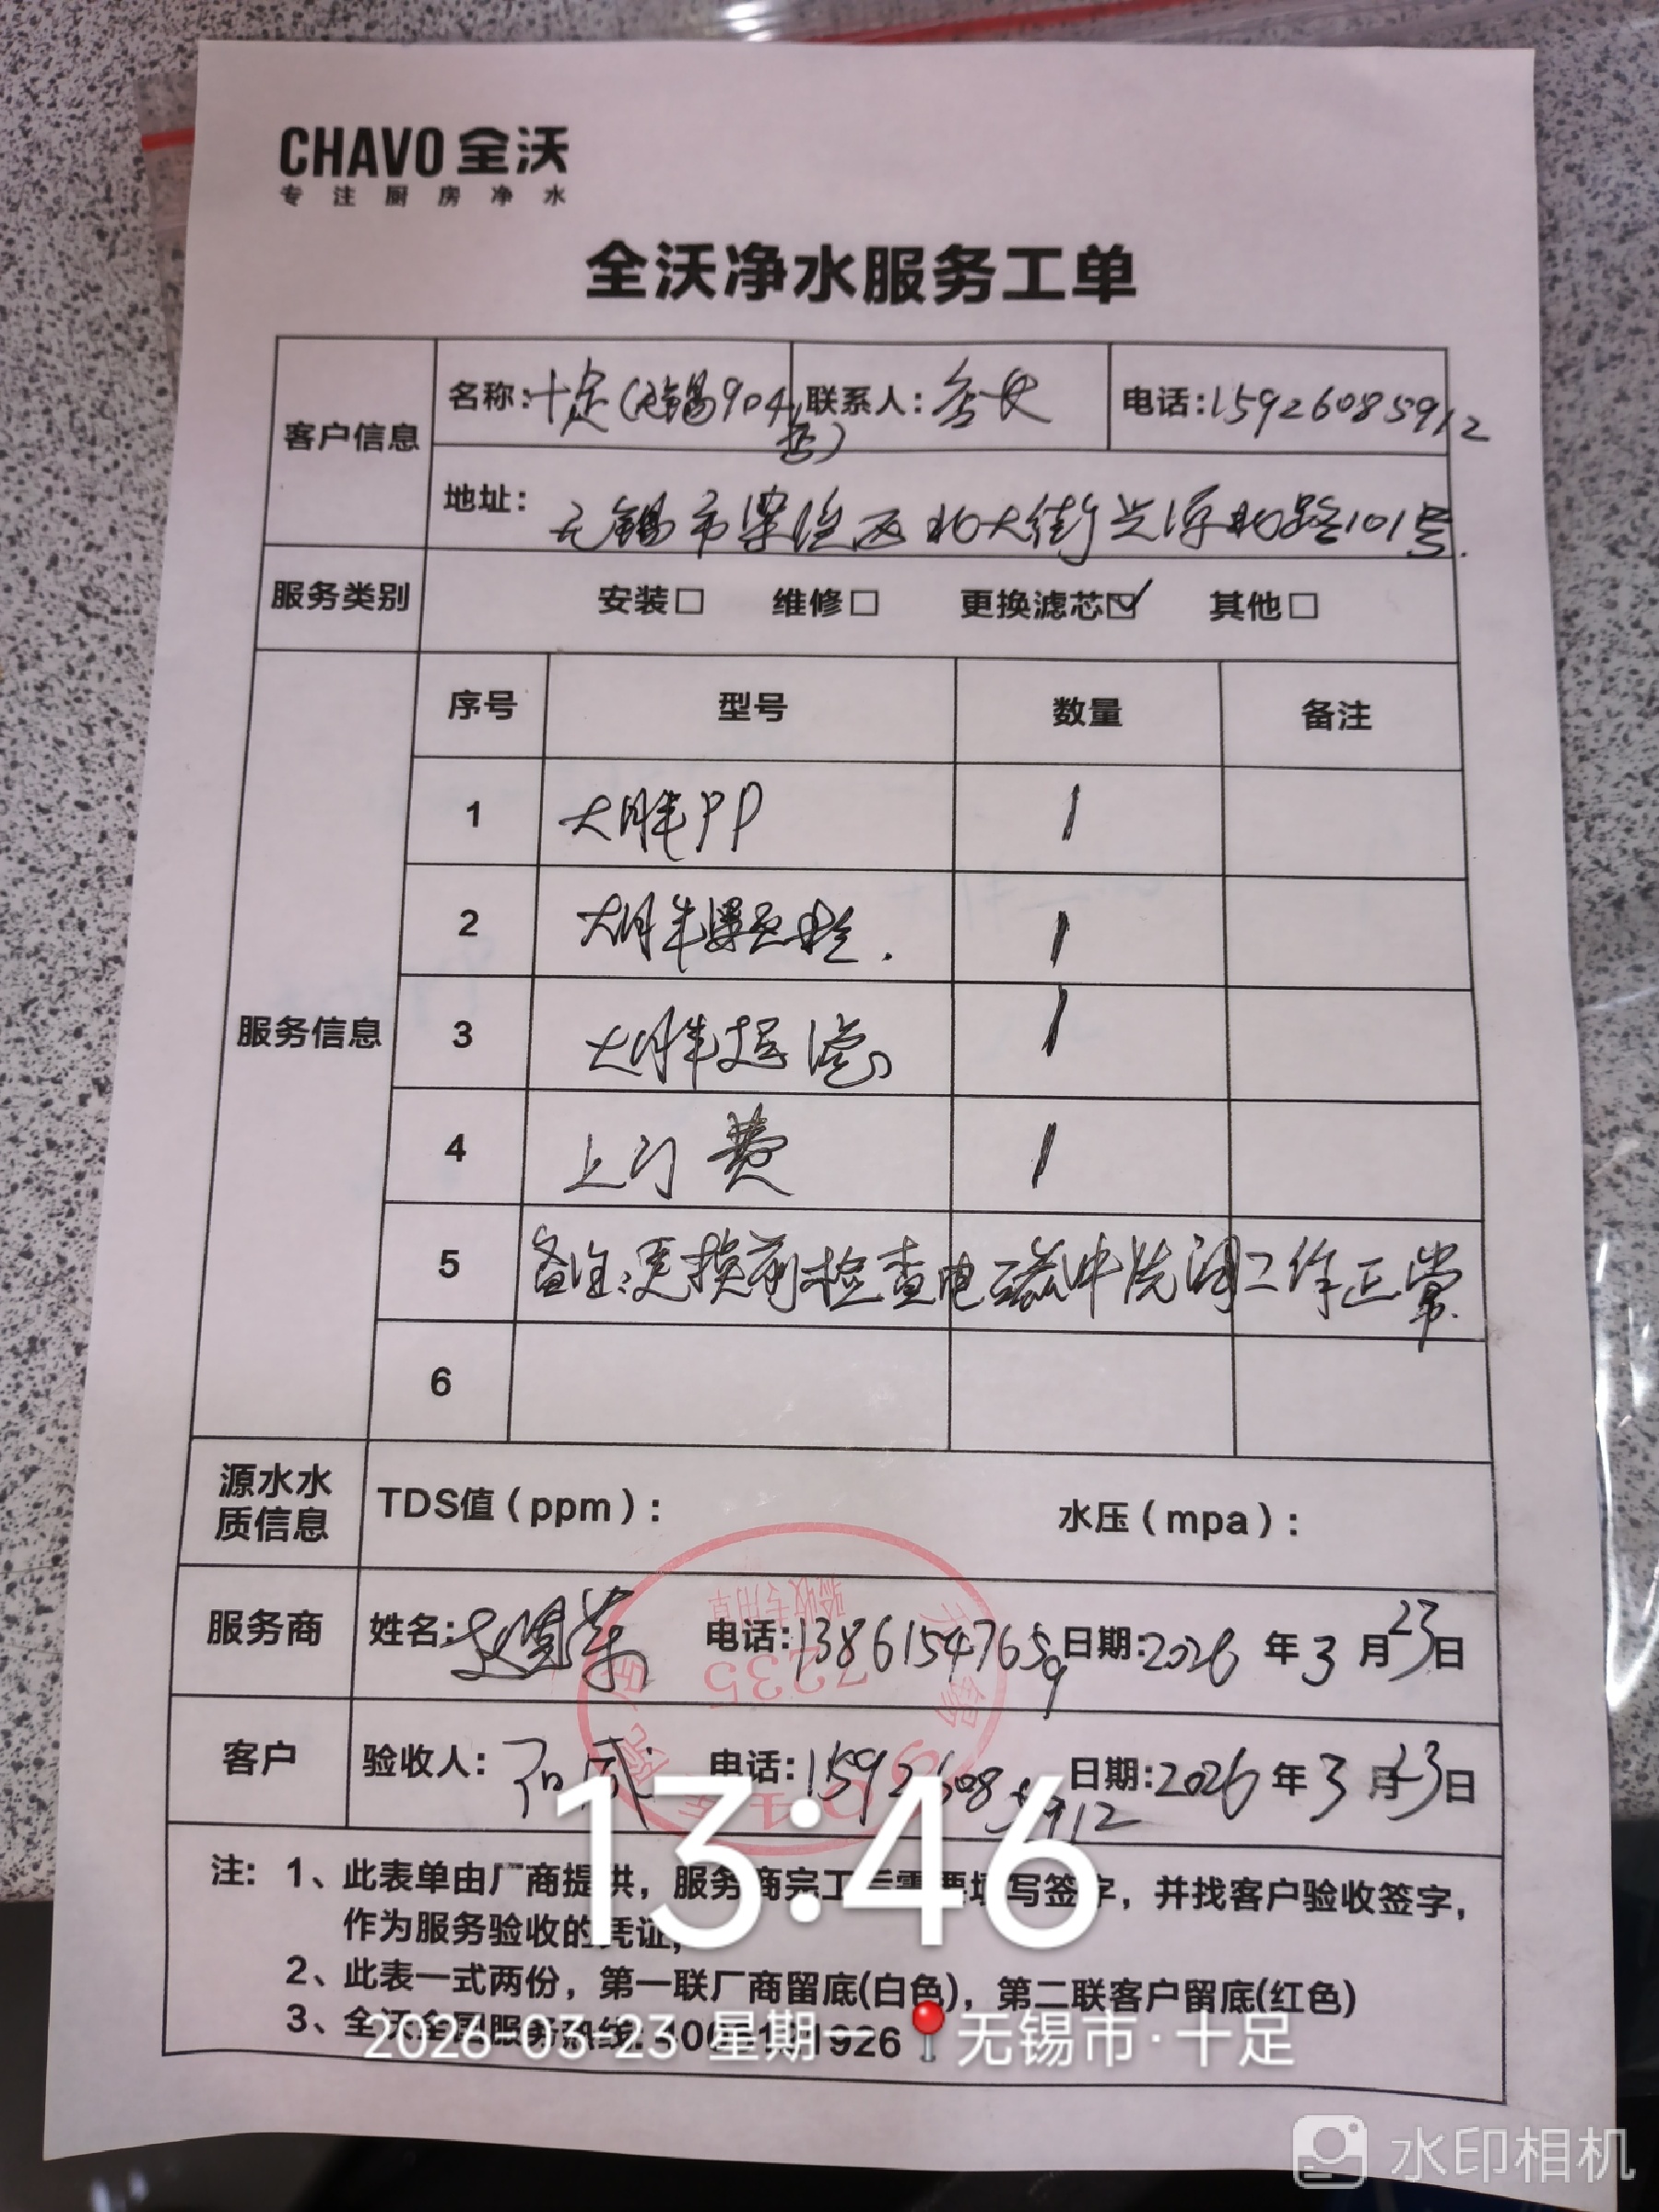 CHAVO 全沃
专注厨房净水
全沃净水服务工单
客户信息
名称:十足(无锡904店)
联系人:店长
电话:15926085912
地址: 无锡市梁溪区北大街兴源北路101号.
服务类别
安装□ 维修□ 更换滤芯☑ 其他□
服务信息
序号 型号 数量 备注
1 大胖PP 1
2 大胖颗粒炭. 1
3 大胖超滤 1
4 上门费 1
5 备注:更换前检查电磁冲洗阀工作正常.
6
源水水质信息
TDS值(ppm): 水压(mpa):
服务商 姓名: 电话:13861547659 日期:2026年3月23日
验收专用章
7235
无锡
904
客户 验收人: 电话:15926085912 日期:2026年3月23日
13:46
注: 1、此表单由厂商提供，服务商完工后需要填写签字，并找客户验收签字，
作为服务验收的凭证;
2、此表一式两份，第一联厂商留底(白色)，第二联客户留底(红色)
3、全沃全国服务热线:
2026-03-23 星期一 无锡市·十足
水印相机